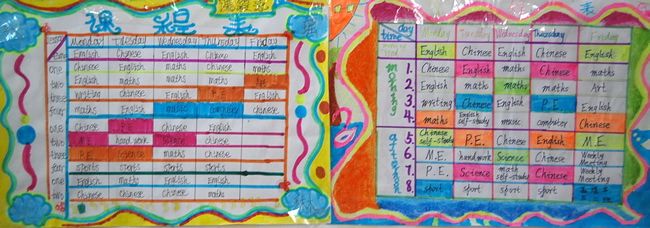 课程表
Monday Tuesday Wednesday Thursday Friday
English Chinese English Chinese English
one Chinese English maths Chinese maths
two English maths maths maths
three writing Chinese English English
four maths English maths computer chinese
one Chinese P.E. Chinese English
two M.E. hand work Science chinese
three P.E. Science maths Chinese
four sports sports sports sports
one English maths English English
two Chinese Chinese Chinese maths
表
day Monday Tuesday Wednesday Thursday Friday
time
English Chinese English Chinese English
1. Chinese English maths Chinese maths
2. English maths maths maths Art
3. writing Chinese English P.E. English
4. maths English self-study music computer Chinese
5. Chinese self-study P.E. Chinese English M.E.
6. M.E. handwork Science Chinese Weekly Meeting
7. P.E. Science math self-study Chinese Weekly Meeting
8 sport sport sport sport
afternoon